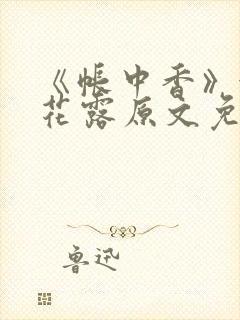 《帐中香》
花露原文免
鲁迅